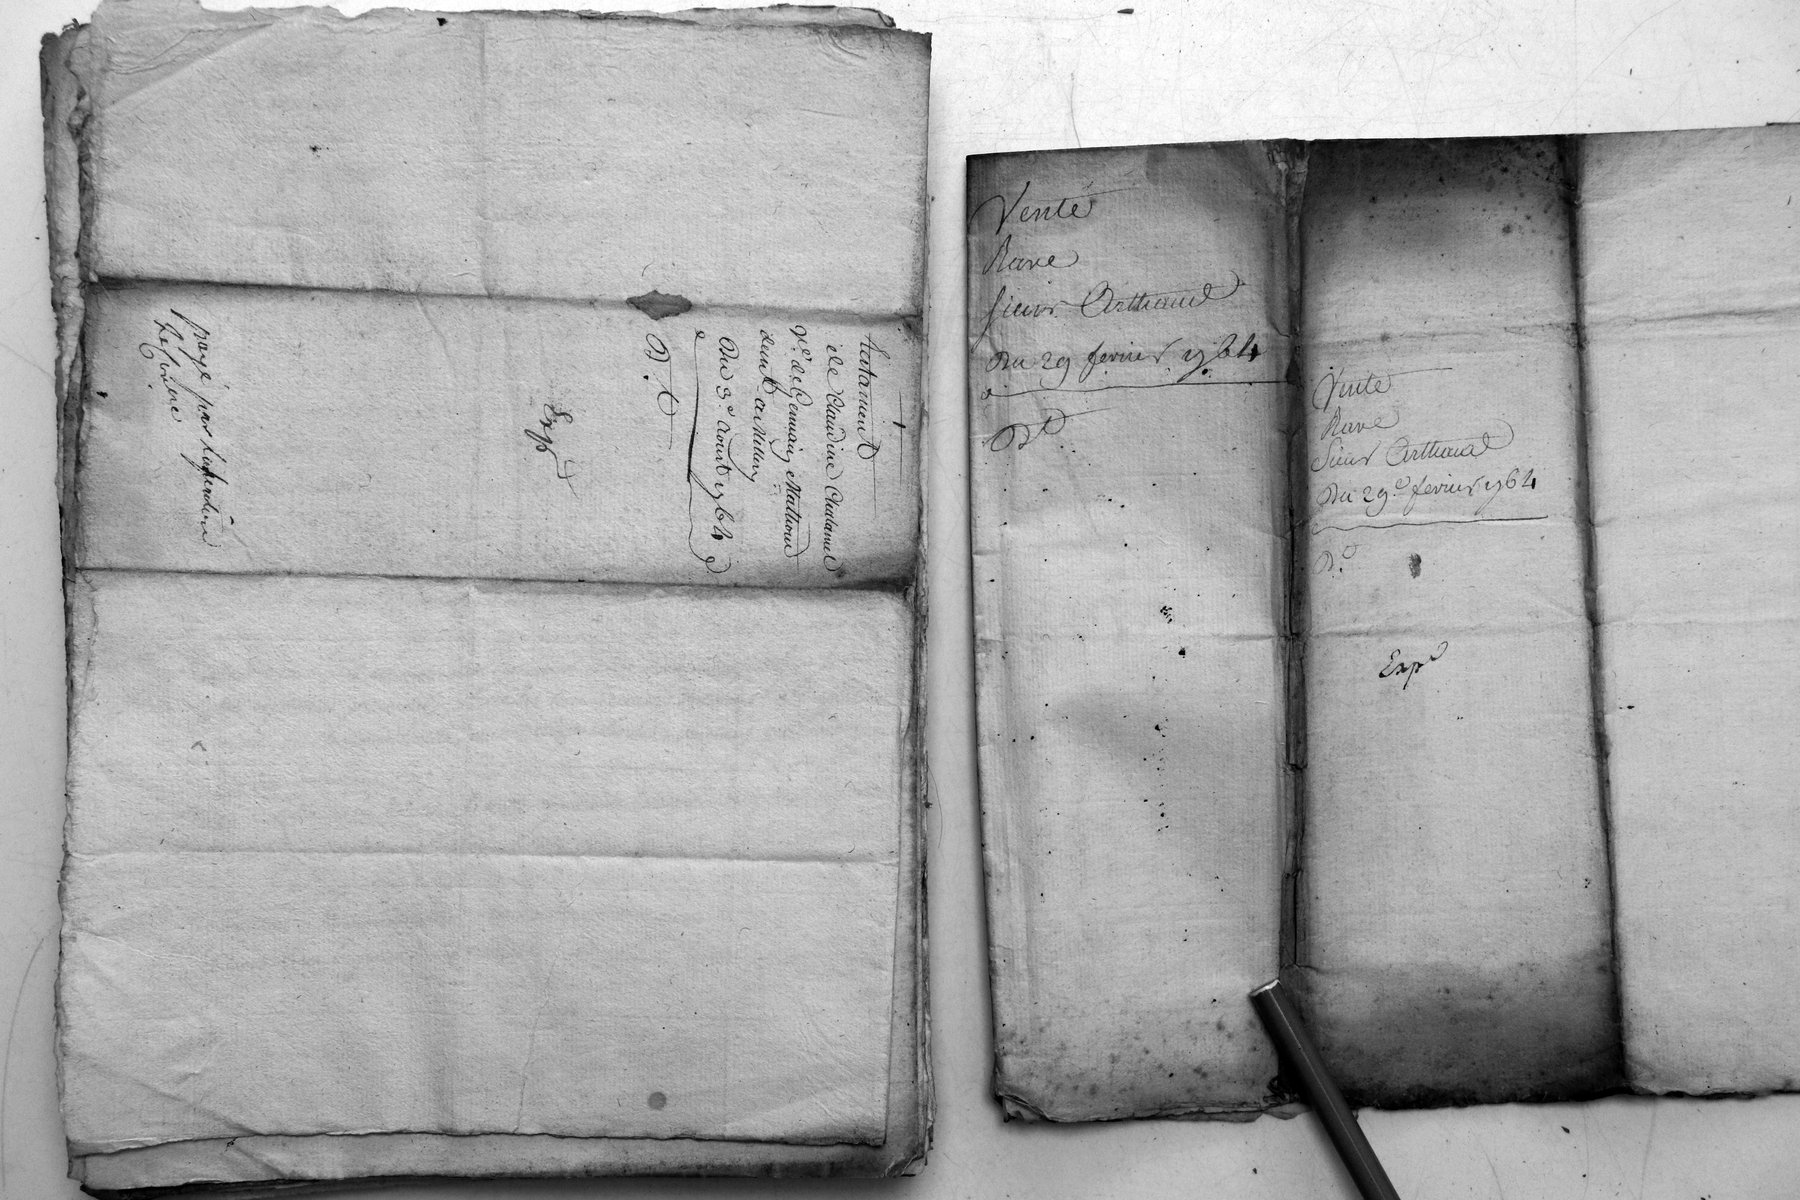 testament
de Claudine Chalamel
v.e de Germain Mathoud
deut a Millery
Du 3.e aoust 1764
D. t
Exp
payé par
Vente
Rave
Sieur Arthaud
Du 29 fevrier 1764
D t
Vente
Rave
Sieur Arthaud
Du 29.e fevrier 1764
D. t
Exp.e